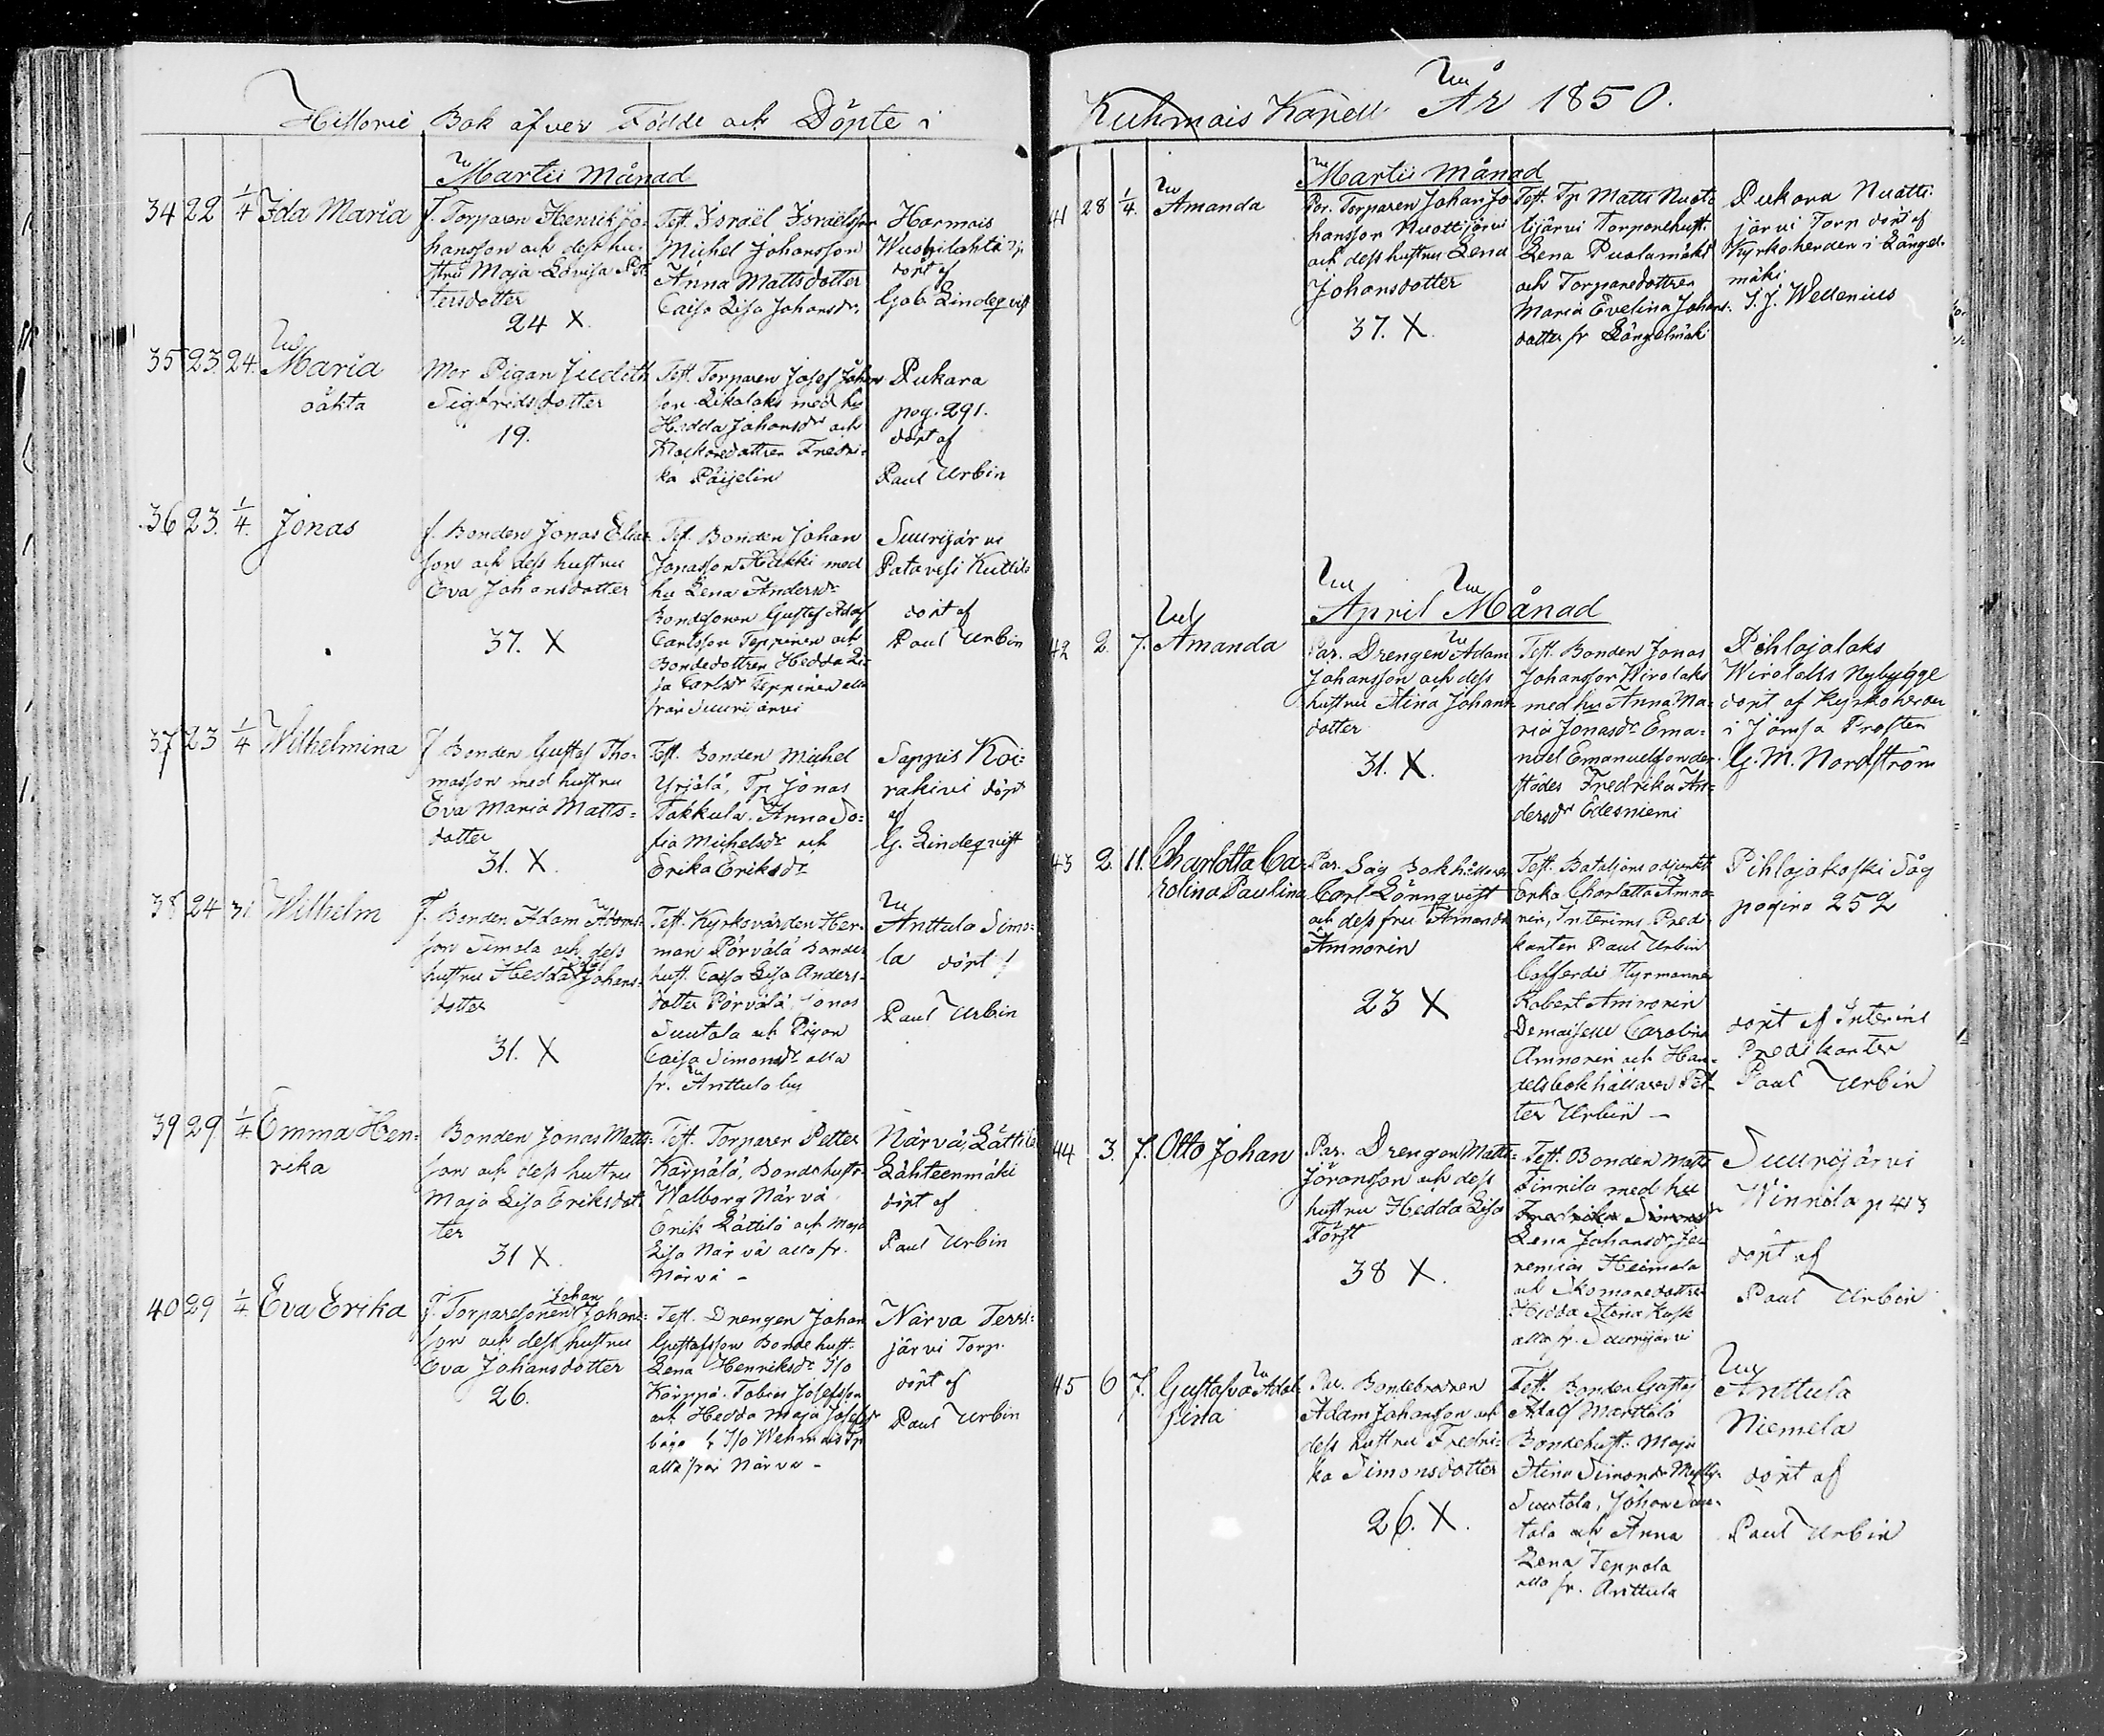 Historie Bok öfver Födde och Döpte i
Martii Månad
34 22 1/4 Ida Maria
f. Torparen Henrik Jo-
hansson och dess hu-
stru Maja Lovisa Pet-
tersdotter
24 X.
Test. Israël Israëlsson
Michel Johansson
Anna Mattsdotter
Caisa Lisa Johansdr
Harmois
döpt af
Gab. Lindeqvist
35 23. 24. Maria
oäkta
Mor Pigan Judith
Sigfridsdotter
19.
Test. Torparen Josef Johan
son med hu
Hedda Johansdr och
Klockaredottren Fredri-
ka Päijelin
Pukara
pag. 291.
döpt af
Paul Urbin
36 23. 1/4. Jonas
f. Bonden Jonas Elias
son och dess hustru
Eva Johansdotter
37. X
Test. Bonden Johan
Jonasson Heikki med
hu Lena Andersdr
Bondesonen Gustaf Adolf
Carlsson Teppinen och
Bondedottren Hedda Li-
sa Carlsdr Teppinen alla
från Suurijärvi
Suurijärvi
Patavesi Kuttila
döpt af
Paul Urbin
37 23 1/4 Wilhelmina
f Bonden Gustaf Tho-
masson med hustru
Eva Maria Matts-
dotter
31. X.
Test. Bonden Michel
Yrjälä, Tp Jonas
Takkula. Anna So-
fia Michelsdr och
Erika Eriksdr
Sappis Koi-
rakivi döpt
af
G. Lindeqvist
38 24 31 Wilhelm
f. Bonden Adam Adams-
son Simola och dess
hustru Hedda Johans-
dotter
31. X
Test. Kyrkovärden Her-
man Pörvälä Bonde-
hust. Caisa Lisa Anders-
dotter Pörvälä, Jonas
Suutala och Pigan
Caisa Simonsdr alla
fr. Anttula by
Anttula Simo-
la döpt f
Paul Urbin
39 29 1/4 Emma Hen-
rika
Bonden Jonas Matts-
son och dess hustru
Maja Lisa Eriksdot-
ter
31 X.
Test. Torparen Petter
Karpälä, Bondehustr
Walborg Närvä
Erik Lättilä och Maja
Lisa Närvä alla fr.
Närvä -
Närvä, Lättilä
Lähteenmäki
döpt af
Paul Urbin
40 29 1/4 Eva Erika
f. Torparesonen Johan Johans-
son och dess hustru
Eva Johansdotter
26.
Test. Drengen Johan
Gustafsson Bondehust.
Lena Henriksdr Iso
Karppi. Tobias Josefsson
och Hedda Maja Josefsdr
båda fr Iso Wehmais Tp
alla från Närva -
Närva Terri-
järvi Torp.
döpt af
Paul Urbin
Kuhmois Kapell År 1850.
Martii Månad
41 28 1/4. Amanda
Par. Torparen Johan Jo
hansson Nuottijärvi
och dess hustru Lena
Johansdotter
37. X.
Test. Tp Matts Nuot-
tijärvi Torparehust.
Lena Puolamäki
och Torparedottren
Maria Evelina Johans-
dotter fr Längelmäki
Pukara Nuotti-
järvi Torp döpt af
Kyrkoherden i Längel-
mäki
J. J. Wellenius
April Månad
42 2. 7. Amanda
Par. Drengen Adam
Johansson och dess
hustru Stina Johans
dotter
31. X.
Test. Bonden Jonas
Johansson Wirolaks
med hu Anna Ma-
ria Jonasdr Ema-
nuel Emanuelsson
Fredrika An-
dersdr Edesniemi
Pihlajalaks
Wirolaks Nybygge
döpt af Kyrkoherden
i Jämsä Prosten
G. M. Nordström
43 2. 11. Charlotta Ca-
rolina Paulina
Par. Såg Bokhållaren
Carl Lönnqvist
och dess fru Amanda
Amnorin
23 X
Test. Bataljons adjunkt
Erika Charlotta Amno-
rin, Interims Pred-
kanten Paul Urbin
Cofferdi Styrmannen
Robert Amnorin
Demoiselle Carolina
Amnorin och Han-
delsbokhållaren Pet-
ter Urbin -
Pihlajakoski Såg
pagina 252
döpt af Interims
Predikanten
Paul Urbin
44 3. 7. Otto Johan
Par. Drengen Matts
Göransson och dess
hustru Hedda Lisa
Först
38 X.
Test. Bonden Matts
Finnila med hu
Fredrika Simonsdr
Lena Johansdr Je-
remias Heimala
och Skomaredottren
Hedda Stina Kask
alla fr. Suurijärvi
Suurijärvi
Winnila p 413
döpt af
Paul Urbin
45 6 7. Gustafva Adol-
fina
Par. Bondebrodren
Adam Johansson och
dess hustru Fredri-
ka Simonsdotter
26. X.
Test. Bonden Gustaf
Adolf Marttila
Bondehust. Maja
Stina Simonsdr
Suutala, Johan Suu-
tala och Anna
Lena Teppala
alla fr. Anttula
Anttula
Niemela
döpt af
Paul Urbin